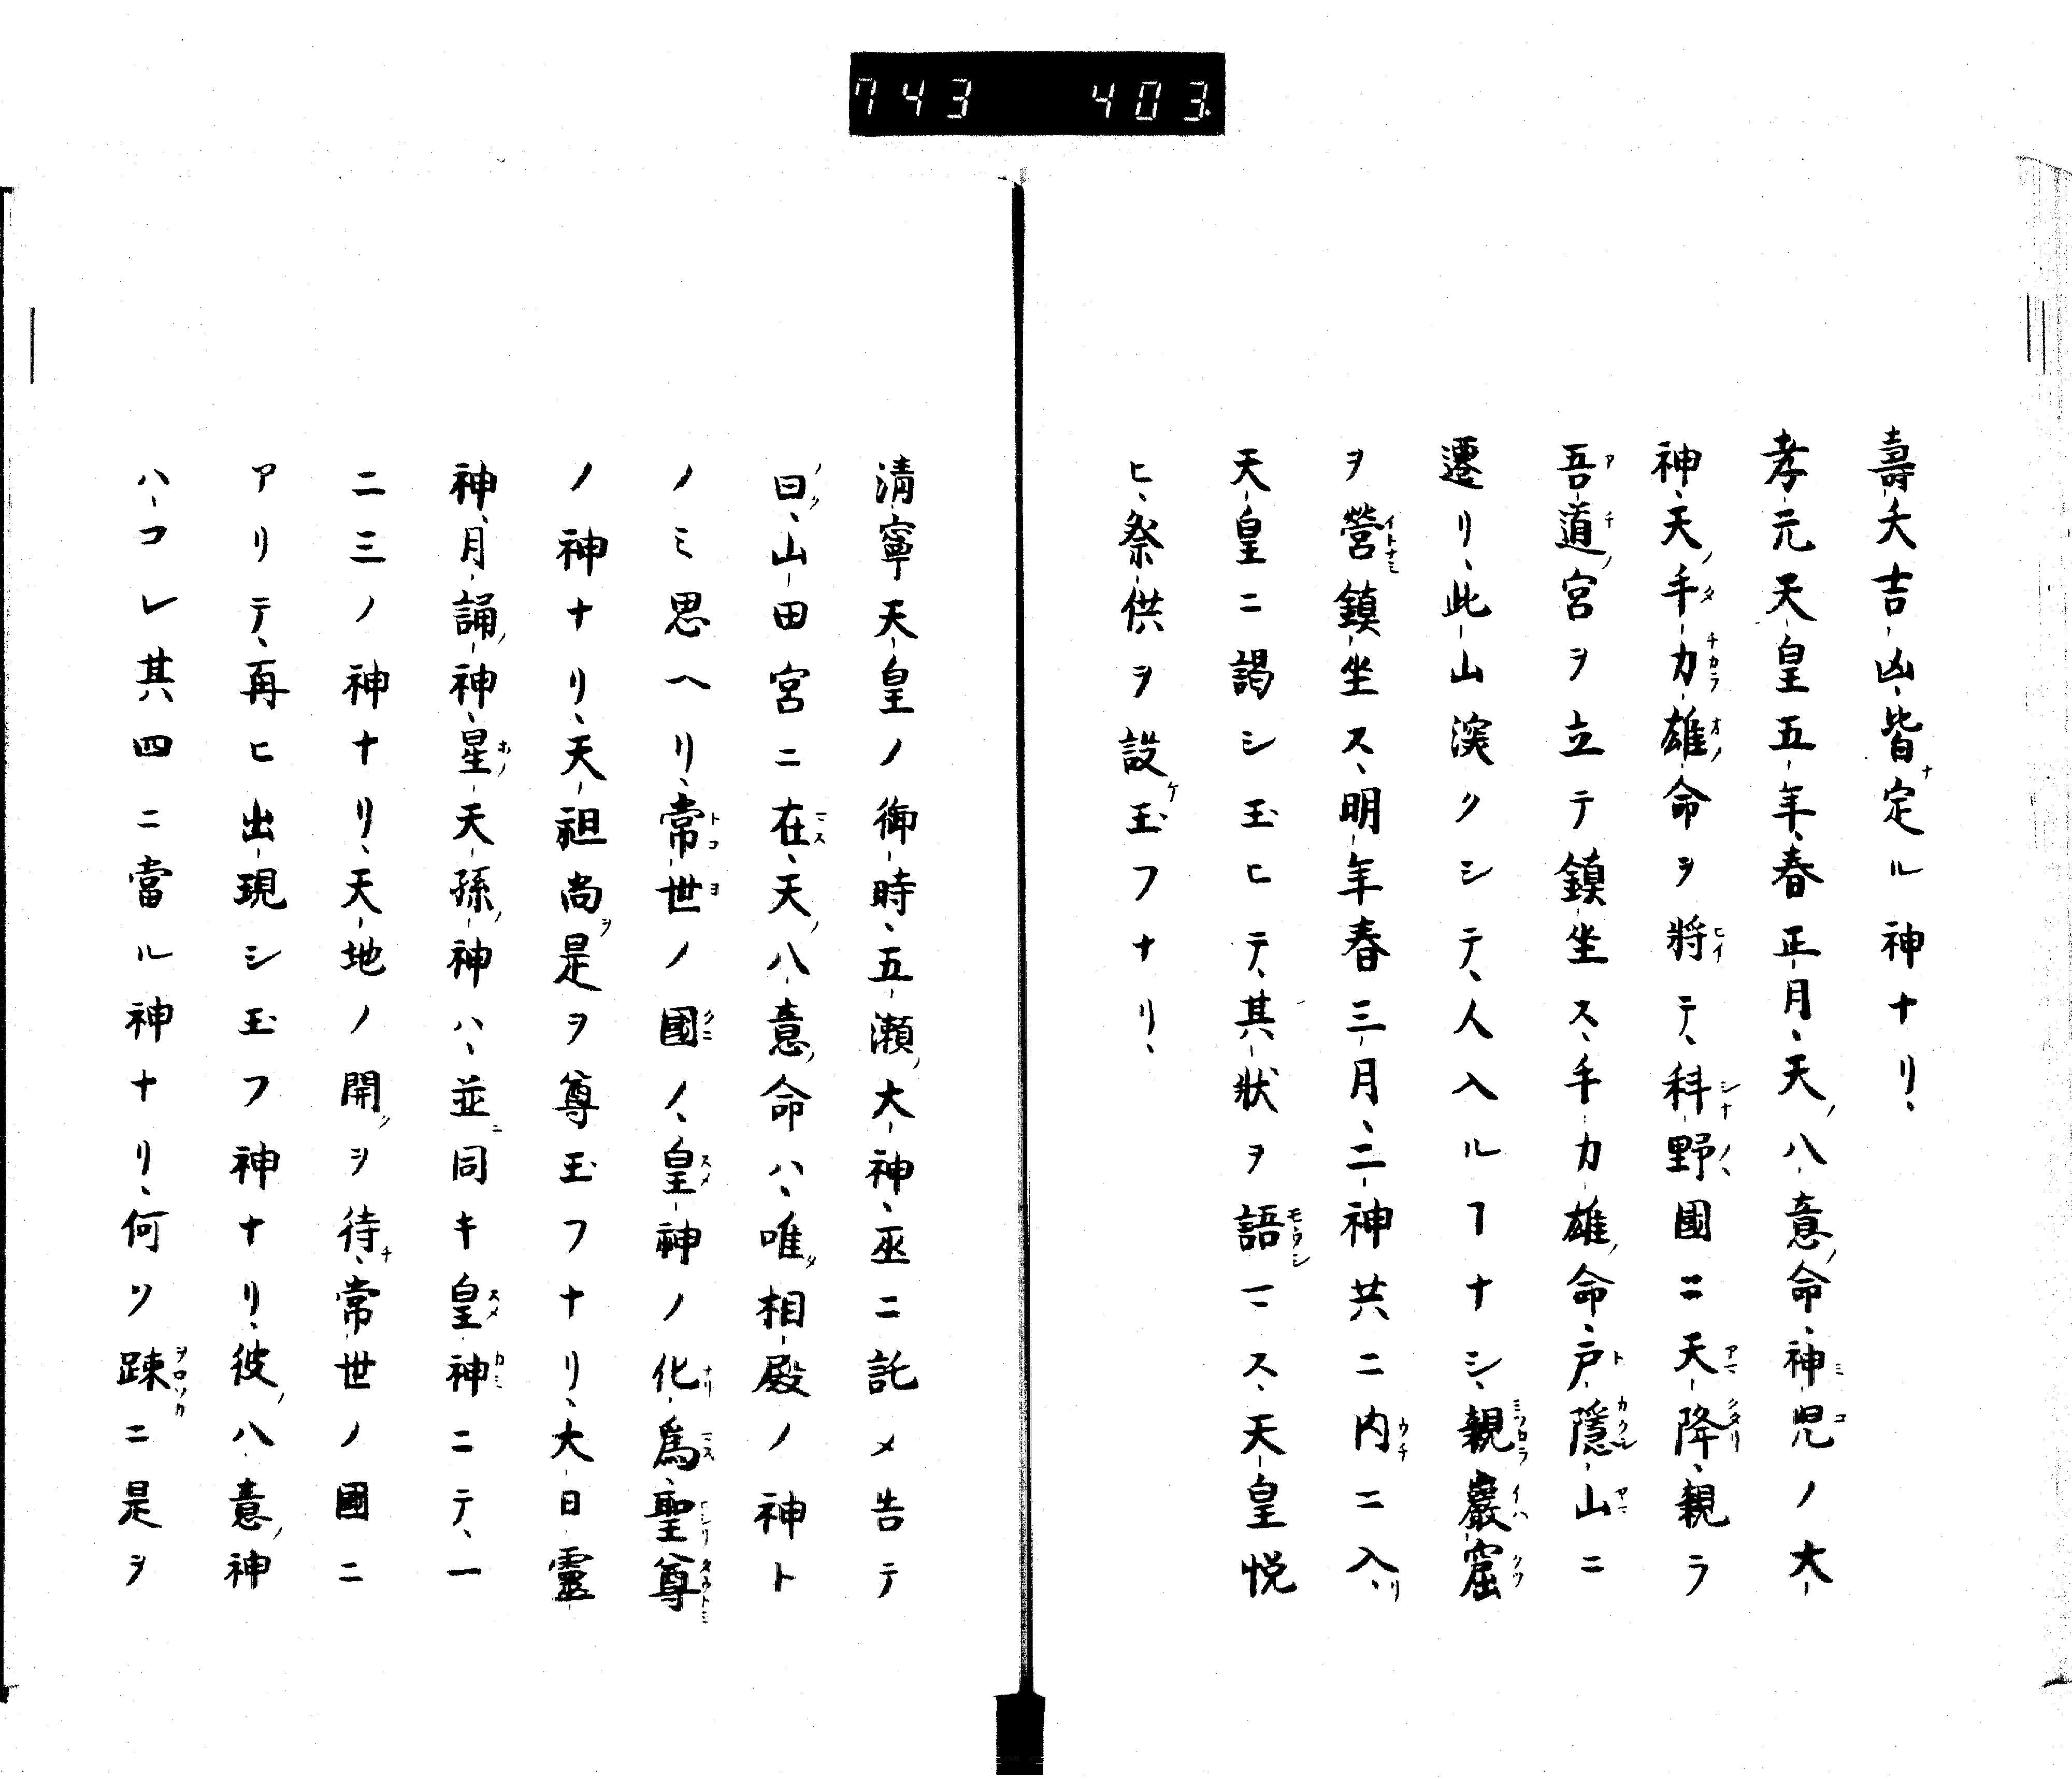 743 403
壽夭吉凶、皆定ル神ナリ、
孝元天皇五年、春正月、天八意命、神児ノ大
神、天手力雄命ヲ将テ、科野國ニ天降、親ラ
吾道宮ヲ立テ鎮坐ス、手力雄命、戸隠山ニ
遷リ、此山深クシテ、人入ルヿナシ、親巖窟
ヲ營鎮坐ス、明年春三月、二神共ニ内ニ入、
天皇ニ謁シ玉ヒテ、其状ヲ語マス、天皇悦
ヒ、祭供ヲ設玉フナリ、
清寧天皇ノ御時、五瀬大神、巫ニ託メ告テ
曰、山田宮ニ在、天八意命ハ、唯相殿ノ神ト
ノミ思ヘリ、常世ノ國ノ、皇神ノ化為、聖尊
ノ神ナリ、天祖尚是ヲ尊玉フナリ、大日靈
神、月誦神、星天孫神ハ、並同キ皇神ニテ、一
二三ノ神ナリ、天地ノ開ヲ待、常世ノ國ニ
アリテ、再ヒ出現シ玉フ神ナリ、彼八意神
ハコレ其四ニ當ル神ナリ、何ソ踈ニ是ヲ